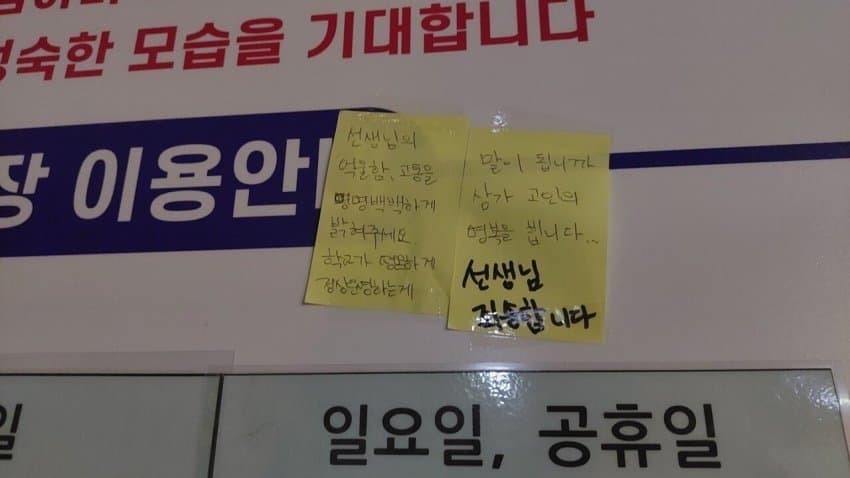 정숙한 모습을 기대합니다
장 이용안
선생님의
억울함, 고통을
명명백백하게
밝혀주세요.
학교가 평온하게
정상운영하는게
말이 됩니까
삼가 고인의
명복을 빕니다...
선생님
죄송합니다
일
일요일, 공휴일